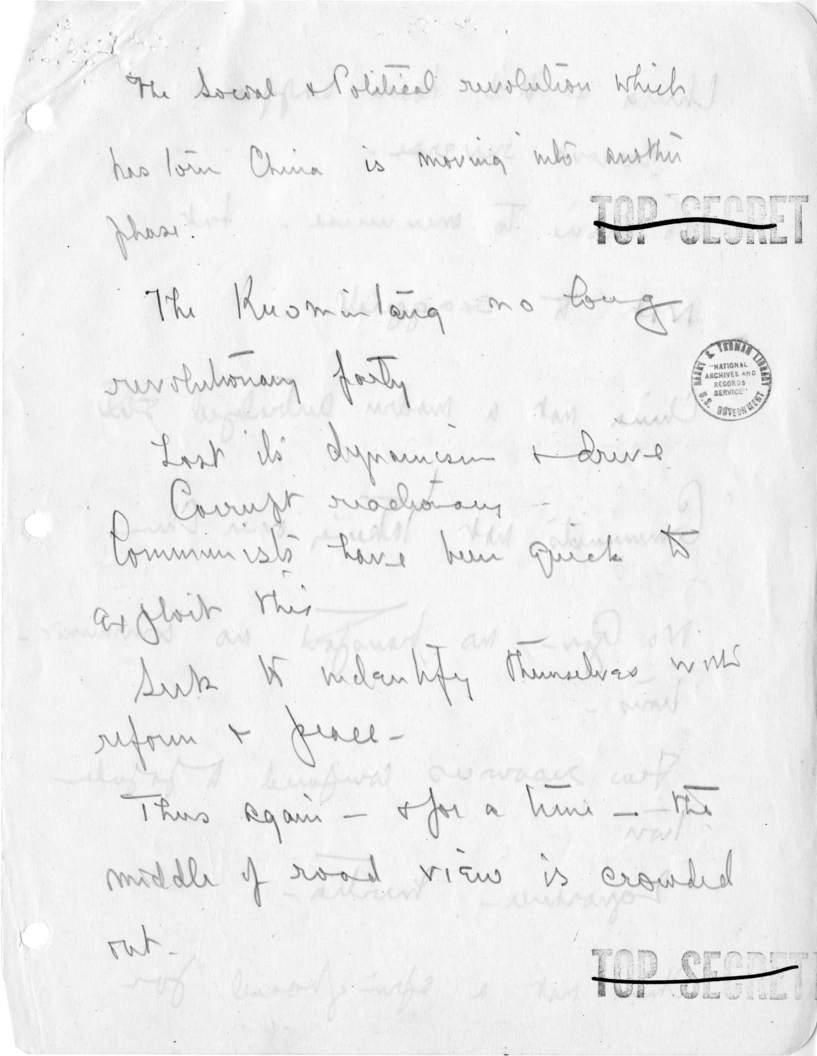 The Social & Political revolution which
has torn China is moving into another
phase.
TOP SECRET
The Kuomintang no long
revolutionary party
HARRY S. TRUMAN LIBRARY
"NATIONAL
ARCHIVES AND
RECORDS
SERVICE"
U.S. GOVERNMENT
Lost its dynamism & drive
Corrupt reactionary –
Communists have been quick to
exploit this
Seek to indentify themselves with
reform & peace –
Thus again – & for a time – the
middle of road view is crowded
out –
TOP SECRET